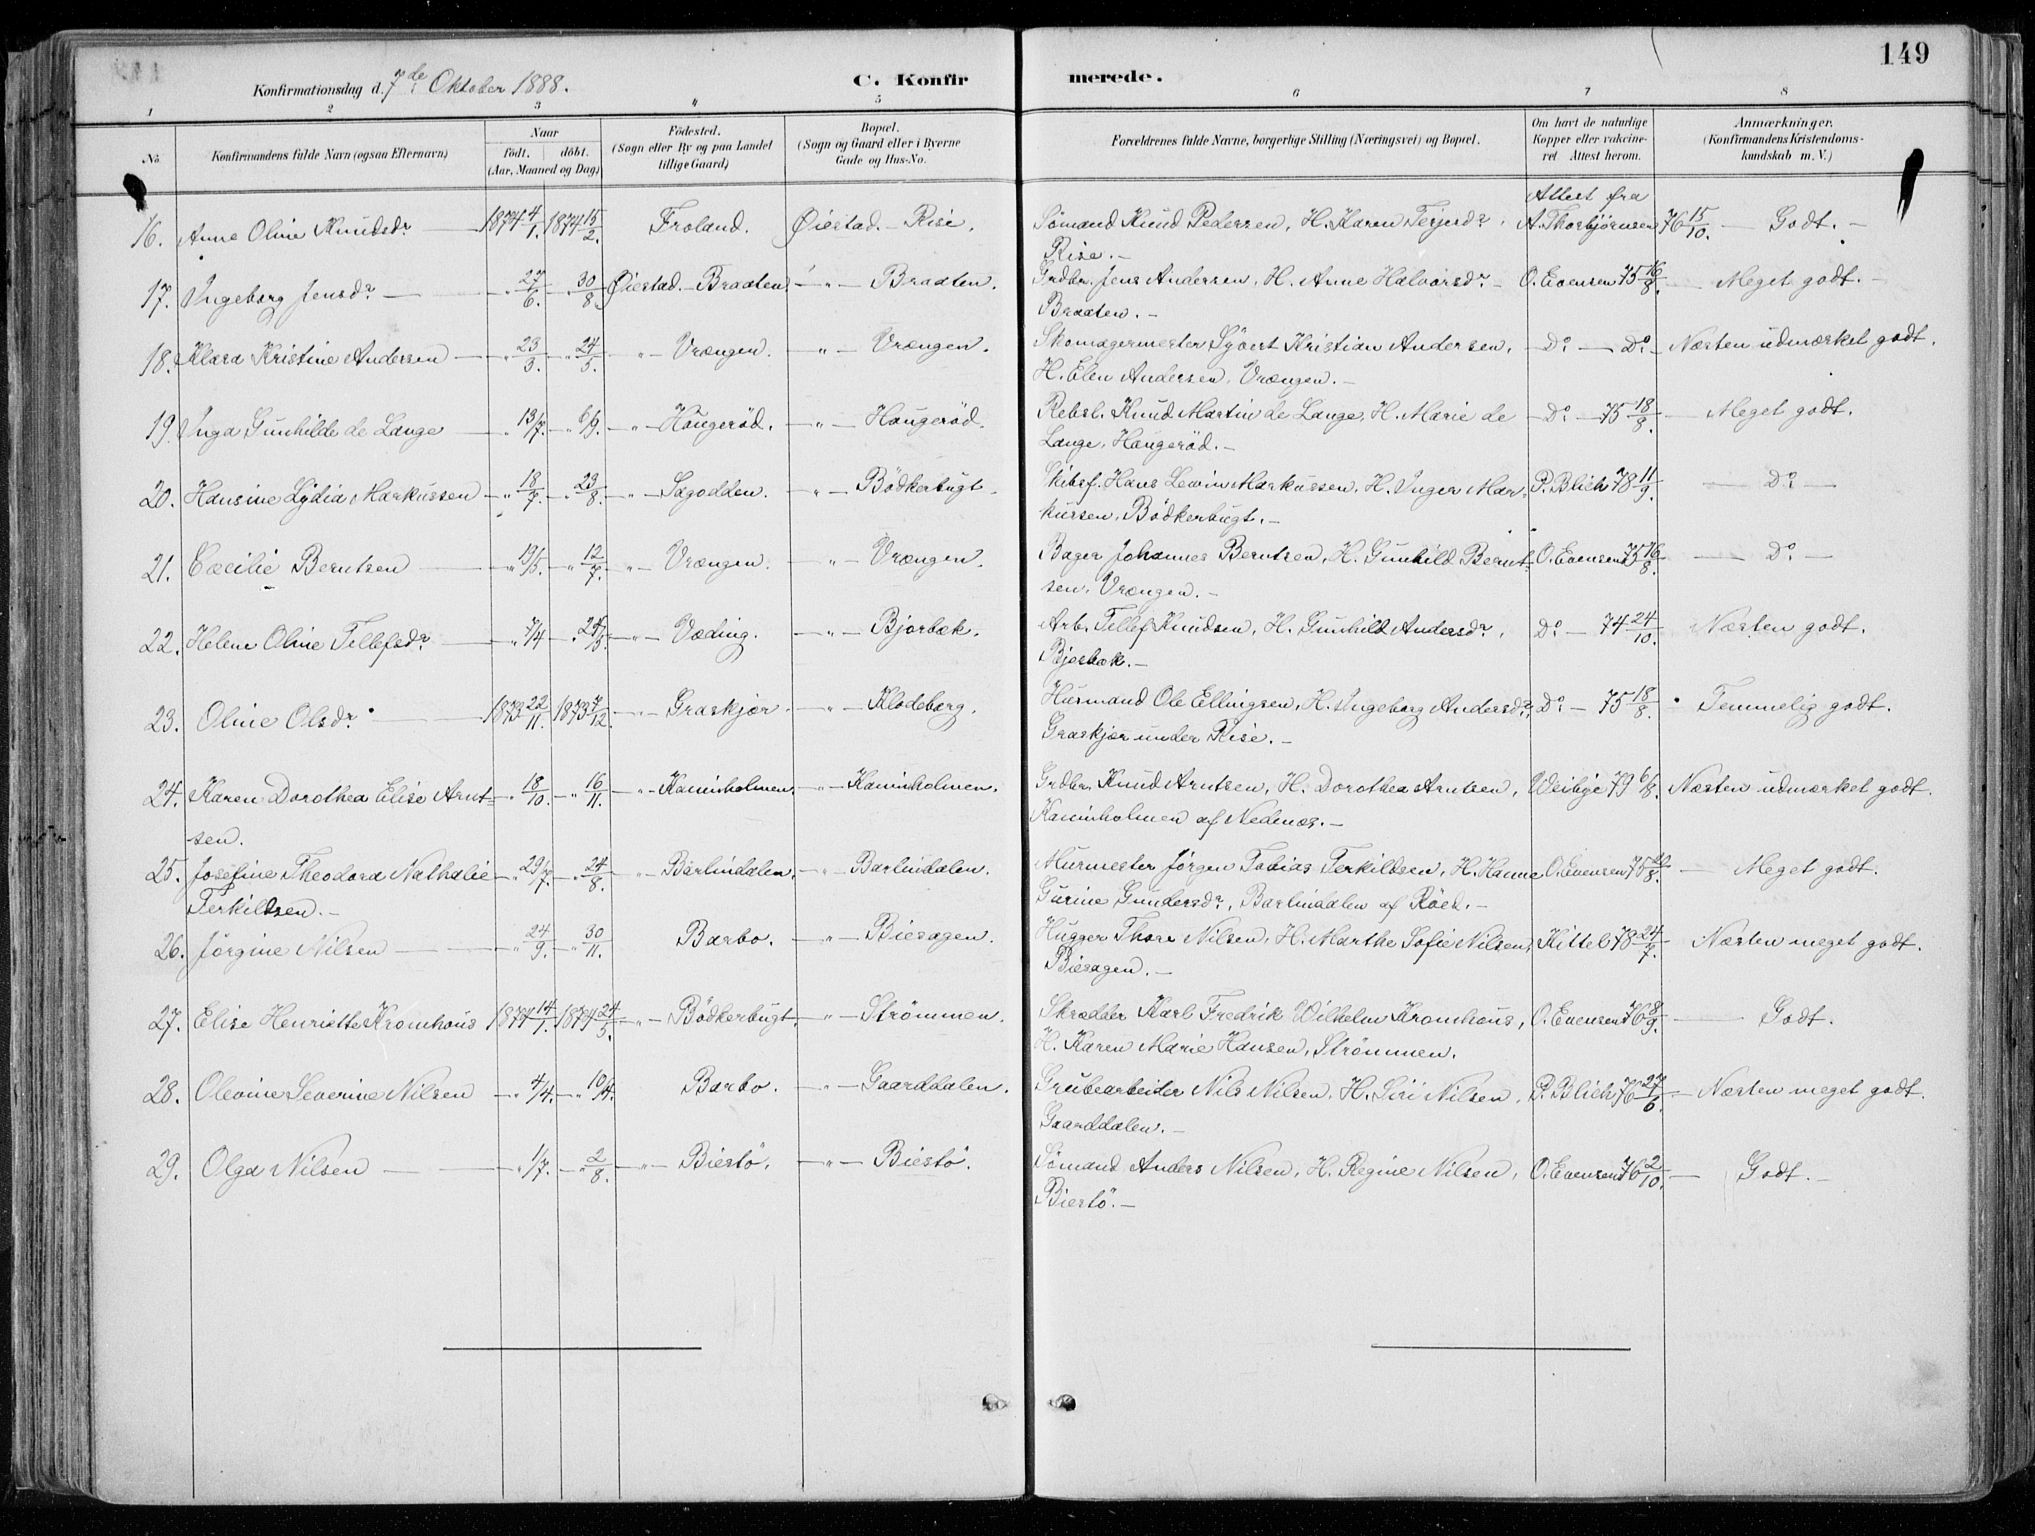 149
Konfirmationsdag d. 7de Oktober 1888. C. Konfirmerede.
1 2 3 4 5 6 7 8
No. Konfirmandens fulde Navn (ogsaa Efternavn) Naar født. døbt. (Aar, Maaned og Dag) Fødested. (Sogn eller By og paa Landet tillige Gaard) Bopæl. (Sogn og Gaard eller i Byerne Gade og Hus-No. Forældrenes fulde Navne, borgerlige Stilling (Næringsvei) og Bopæl. Om havt de naturlige Kopper eller vakcineret Attest herom. Anmærkninger. (Konfirmandens Kristendomskundskab m. V.)
16. Anne Oline Knudsdr 1874 4/1. 1874 15/2. Froland. Øiestad. – Rise. Sømand Knud Pedersen, H. Karen Terjesdr. Attest fra A. Thorbjørnsen 76 15/10. — Godt. –
Rise. –
17. Ingeborg Jensdr — „ 27/6. „ 30/8. Øiestad – Braaten – „ – Braaten. Grdbr. Jens Andersen, H. Anne Halvorsdr – O. Evensen 75 16/8. — Meget godt. –
Braaten. –
18. Klara Kristine Andersen – „ 23/3. – „ 24/5. „ – Vrængen. „ – Vrængen. Skomagermester Syvert Kristian Andersen, – Do — Do – Næsten udmærket godt.
H. Elen Andersen, Vrængen. –
19. Inga Gunhilde de Lange – „ 13/7. – „ 6/9. – „ – Haugerød. – „ – Haugerød. Rebsl. Knud Martin de Lange, H. Marie de – Do – 75 18/8. – Meget godt.
Lange, Haugerød. –
20. Hansine Lydia Markussen – „ 18/7. – „ 23/8. – „ – Sagodden. „ – Bødkerbugt – Skibsf. Hans Lewin Markussen, H. Inger Mar- P. Blich 78 11/9. — Do —
kussen, Bødkerbugt. –
21. Cæcilie Berntsen — „ 19/5. – „ 12/7. „ – Vrængen. „ – Vrængen. Bager Johannes Berntsen, H. Gunhild Bernt- O. Evensen 75 16/8. — Do —
sen, Vrængen. –
22. Helene Oline Tellefsdr — „ 7/4 – „ 25/5. – „ – Væding. – „ – Bjorbæk. Arb. Tellef Knudsen, H. Gunhild Andersdr, Do – 74 24/10. Næsten godt.
Bjorbæk. –
23. Oline Olsdr — 1873 22/11. 1873 7/12. – „ – Graskjær. – „ – Klodeborg. Husmand Ole Ellingsen, H. Ingeborg Andersdr, Do – 75 18/8. Temmelig godt.
Graskjær under Rise. –
24. Karen Dorothea Elise Arnt- „ 18/10. – „ 16/11. – „ – Kaninholmen. – „ – Kaninholmen. Grdbr. Knud Arntsen, H. Dorothea Arntsen, Weibye 79 6/8. Næsten udmærket godt.
sen. Kaninholmen af Nedenæs. –
25. Josefine Theodora Nathalie – „ 29/7. – „ 24/8. – „ – Barlindalen. – „ – Barlindalen. Murmester Jørgen Tobias Terkildsen, H. Hanne O. Evensen 75 20/8. — Meget godt.
Terkildsen. – Gurine Gundersdr, Barlindalen af Røed. –
26. Jørgine Nilsen — „ 24/9. – „ 30/11. Barbo. – „ – Biesagen. Hugger Thore Nilsen, H. Marthe Sofie Nilsen, Kittel 78 24/7. – Næsten meget godt.
Biesagen. –
27. Elise Henriette Kromhous 1874 14/1. 1874 24/5. – „ – Bødkerbugt. – „ – Strømmen. Skrædder Karl Fredrik Wilhelm Kromhous, O. Evensen 76 8/9. — Godt.
H. Karen Marie Hansen, Strømmen.
28. Olevine Severine Nilsen – „ 4/4. – „ 10/4. Barbo. – „ – Gaarddalen. Grubearbeider Nils Nilsen, H. Siri Nilsen, P. Blich 76 27/6. – Næsten meget godt.
Gaarddalen. –
29. Olga Nilsen — „ 1/7. – „ 2/8. – „ – Biestø. – „ – Biestø. Sømand Anders Nilsen, H. Regine Nilsen, O. Evensen 76 2/10. — Godt. –
Biestø. –